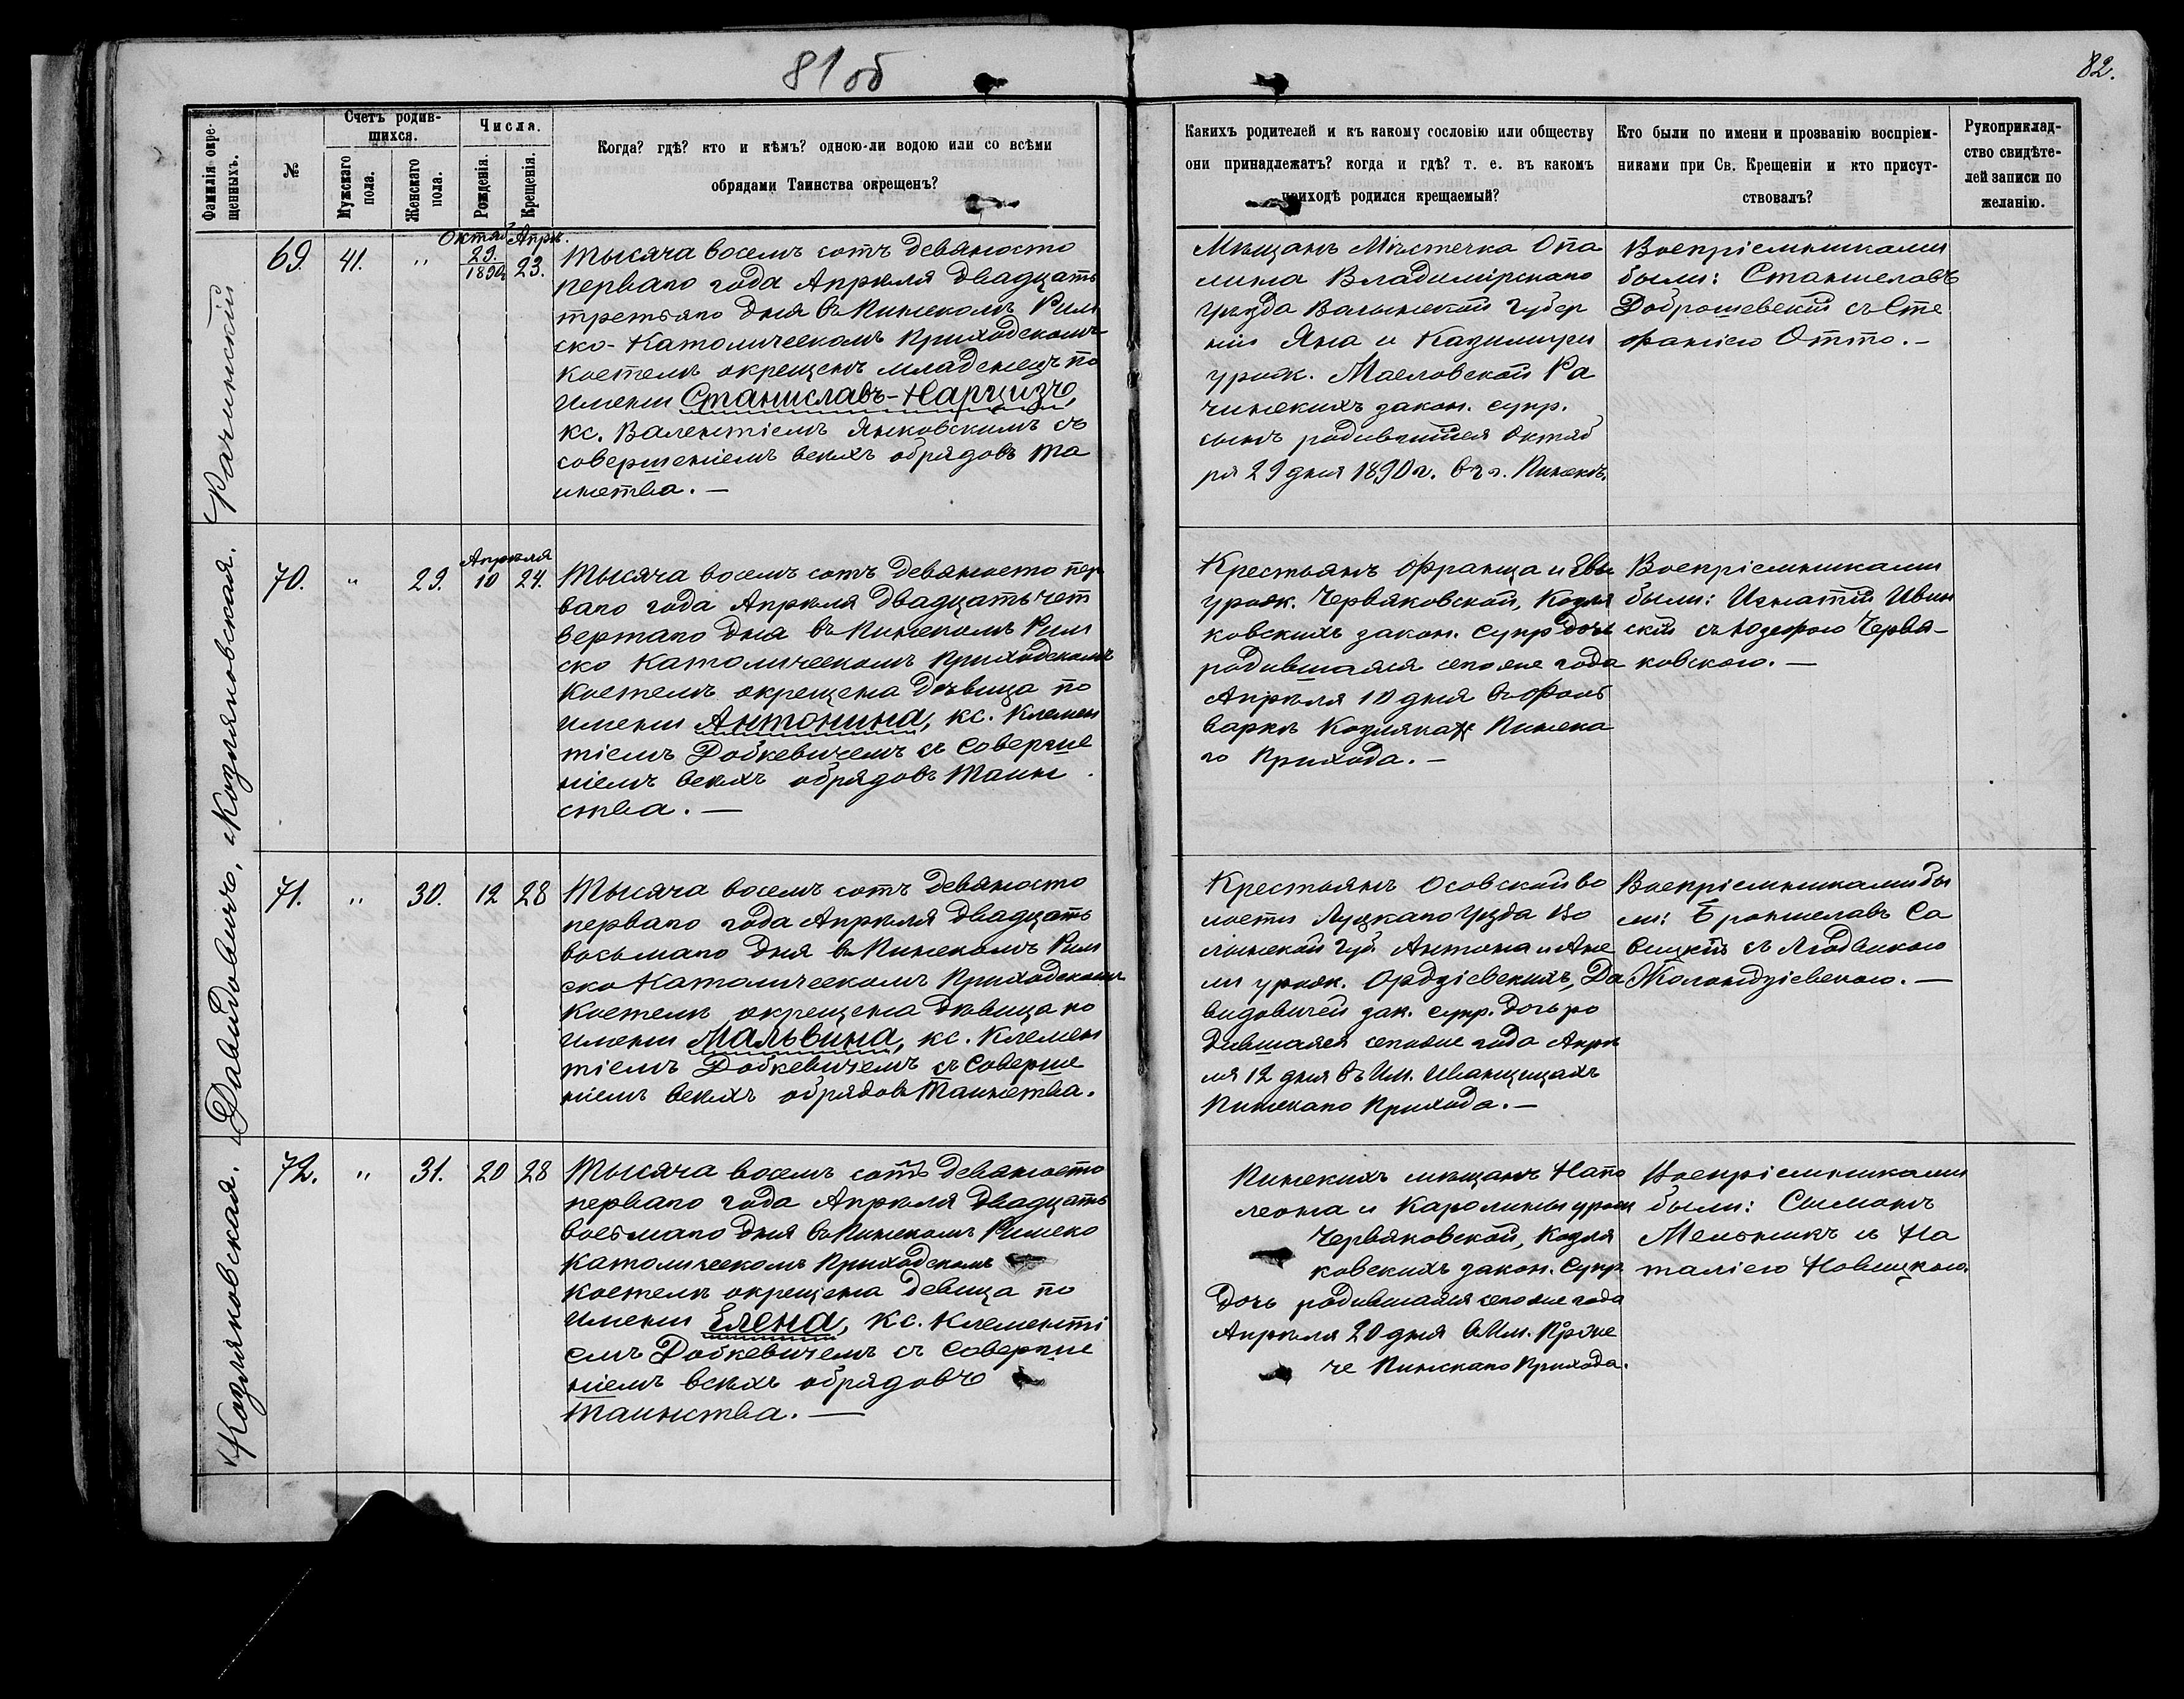 81 об
82.
Фамилія окре-
щенныхъ.
№
Счетъ родив-
шихся.
Мужскаго
пола.
Женскаго
пола.
Числа.
Рожденія.
Крещенія.
Когда? гдѣ? кто и кѣмъ? одною-ли водою или со всѣми
обрядами Таинства окрещенъ?
Какихъ родителей и къ какому сословію или обществу
они принадлежатъ? когда и гдѣ? т. е. въ какомъ
приходѣ родился крещаемый?
Кто были по имени и прозванію воспріем-
никами при Св. Крещеніи и кто присут-
ствовалъ?
Рукоприклад-
ство свидѣте-
лей записи по
желанію.
Рачинскій
69.
41.
"
Октяб.
29.
1890
Апрѣ.
23.
Тысяча восемь сотъ девяносто
перваго года Апрѣля двадцать
третьяго дня въ Пинскомъ Рим
ско-Католическомъ Приходскомъ
костелѣ окрещенъ младенецъ по
имени Станиславъ-Нарцизъ,
кс. Валентіемъ Янковскимъ съ
совершеніемъ всѣхъ обрядовъ Та
инства. —
Мѣщанъ Мѣстечка Опа
лина Владимірскаго
уѣзда Волынской губер
ніи Яна и Казиміры
урож. Масловской Ра
чинскихъ закон. супр.
сынъ родившійся Октяб
ря 29 дня 1890 г. въ г. Пинскѣ.
Воспріемниками
были: Станиславъ
Доброшевскій съ Сте
фаніею Отто. —
Козляковская.
70.
"
29.
Апрѣля
10
24.
Тысяча восемь сотъ девяносто пер
ваго года Апрѣля двадцать чет
вертаго дня въ Пинскомъ Рим
ско Католическомъ Приходскомъ
костелѣ окрещена дѣвица по
имени Антонина, кс. Клемен
тіемъ Добкевичемъ съ соверше
ніемъ всѣхъ обрядовъ Таин
ства. —
Крестьянъ Франца и Евы
урож. Червяковской, Козля
ковскихъ закон. супр дочь
родившаяся сего же года
Апрѣля 10 дня въ фоль
варкѣ Козлякахъ Пинска
го Прихода. —
Воспріемниками
были: Игнатій Ивин
скій съ Юзефою Червя-
ковскою. —
Давидовичъ,
71.
"
30.
12
28
Тысяча восемь сотъ девяносто
перваго года Апрѣля двадцать
восьмаго дня въ Пинскомъ Рим
ско Католическомъ Приходскомъ
костелѣ окрещена дѣвица по
имени Мальвина, кс. Клемен
тіемъ Добкевичемъ съ соверше
ніемъ всѣхъ обрядовъ Таинства.
Крестьянъ Осовской во
лости Луцкаго уѣзда Во
лынской губ. Антона и Ане
ли урож. Ордзіевскихъ, Да
видовичей зак. супр. дочь ро
дившаяся сего же года Апрѣ
ля 12 дня въ Им. Иванищахъ
Пинскаго Прихода. —
Воспріемниками бы
ли: Брониславъ Са
вицкій съ Людвикою
Жолондзіевскою. —
Козляковская.
72.
"
31.
20
28
Тысяча восемь сотъ девяносто
перваго года Апрѣля двадцать
восьмаго дня въ Пинскомъ Римско
Католическомъ Приходскомъ
костелѣ окрещена девица по
имени Елена, кс. Клементі
емъ Добкевичемъ съ соверше
ніемъ всѣхъ обрядовъ
Таинства. —
Пинскихъ мѣщанъ Напо
леона и Каролины урож
Червяковской, Козля
ковскихъ закон. супр
дочь родившаяся сего же года
Апрѣля 20 дня въ Им.
че Пинскаго Прихода.
Воспріемниками
были: Сымонъ
Мельникъ и На
таліею Новицкою.